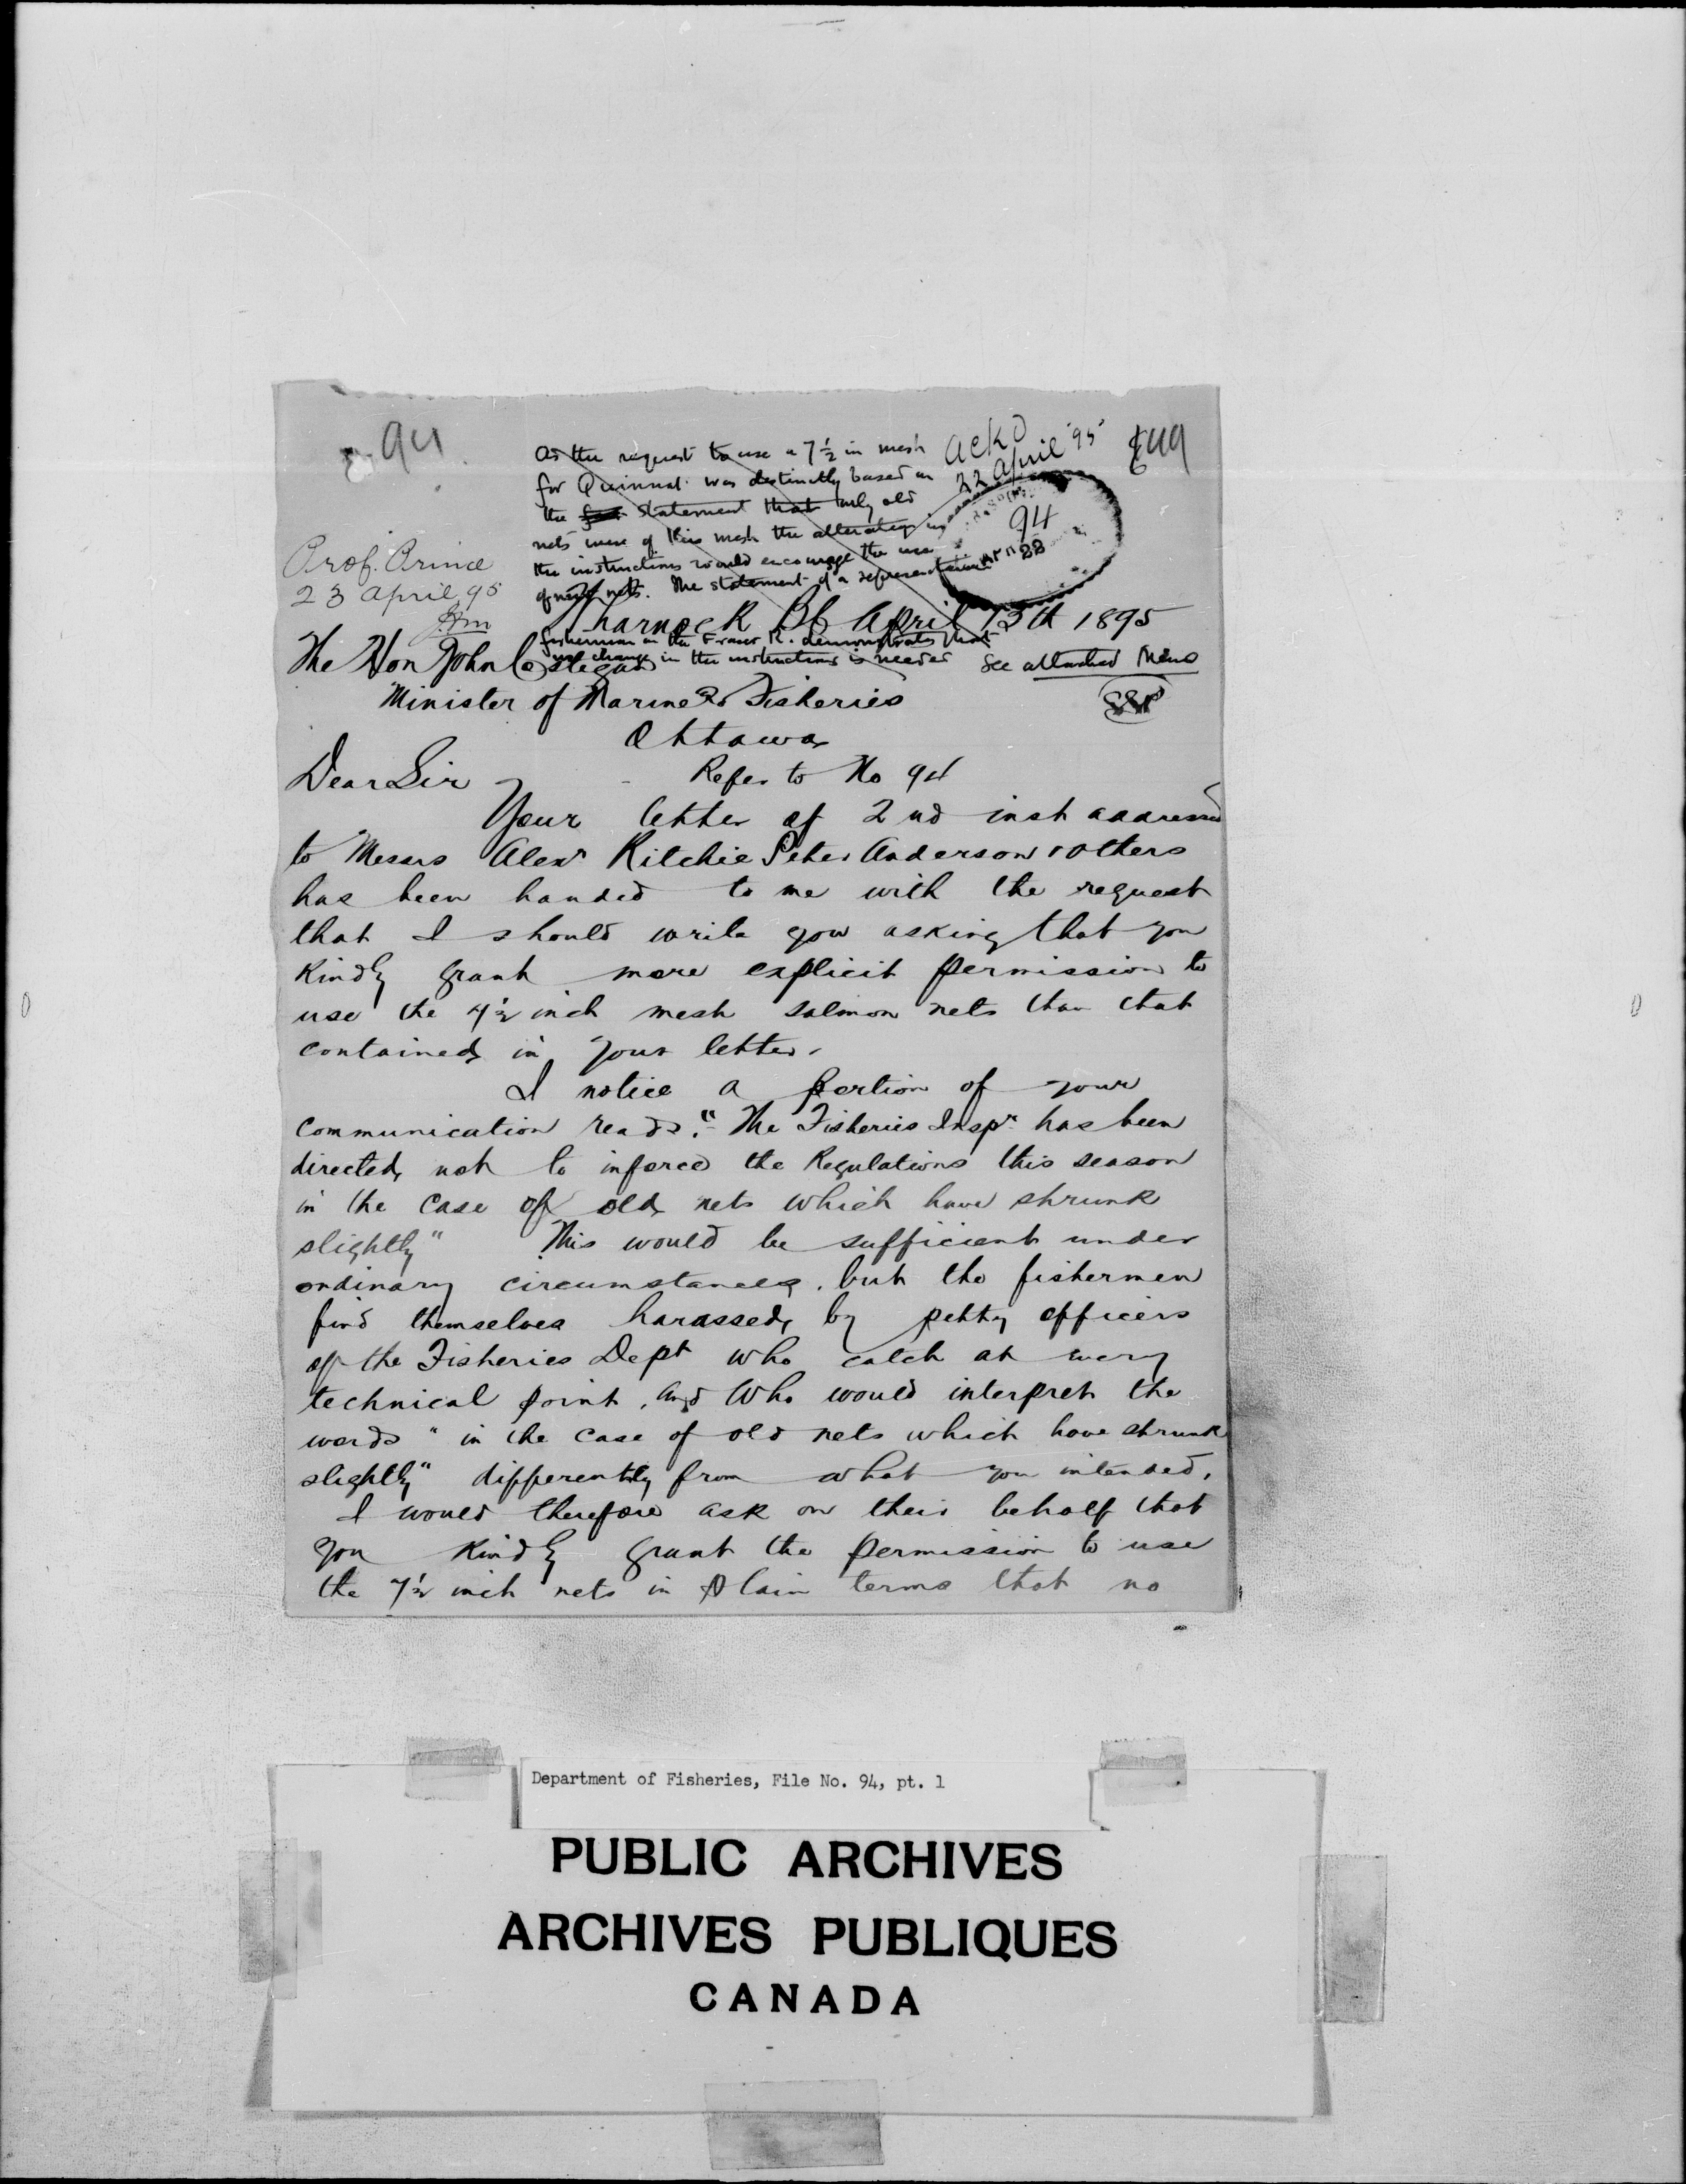 94
Ackd
22 April '95
As the request to use a 7½ in mesh
for Quinnat was distinctly based on
the statement that only old
nets were of this mesh the alteration in
the instructions would encourage the use
of new nets. The statement of a representative
fisherman on the Fraser R. demonstrates that
no change in the instructions is needed
See attached Memo
94
22
Prof. Prince
23 April 95
Wharnock BC April 13th 1895
The Hon John Costegan
Minister of Marine & Fisheries
Ottawa
Dear Sir
Refer to No 94
Your letter of 2nd inst addressed
to Messrs Alexr Ritchie Peter Anderson & others
has been handed to me with the request
that I should write you asking that you
kindly grant more explicit permission to
use the 7½ inch mesh salmon nets than that
contained in your letter.
I notice a portion of your
communication reads:- "The Fisheries Inspr has been
directed not to inforce the Regulations this season
in the case of old nets which have shrunk
slightly" This would be sufficient under
ordinary circumstances, but the fishermen
find themselves harassed by petty officers
of the Fisheries Dept who catch at every
technical point, and who would interpret the
words "in the case of old nets which have shrunk
slightly" differently from what you intended.
I would therefore ask on their behalf that
you kindly grant the permission to use
the 7½ inch nets in plain terms that no
Department of Fisheries, File No. 94, pt. 1
PUBLIC ARCHIVES
ARCHIVES PUBLIQUES
CANADA